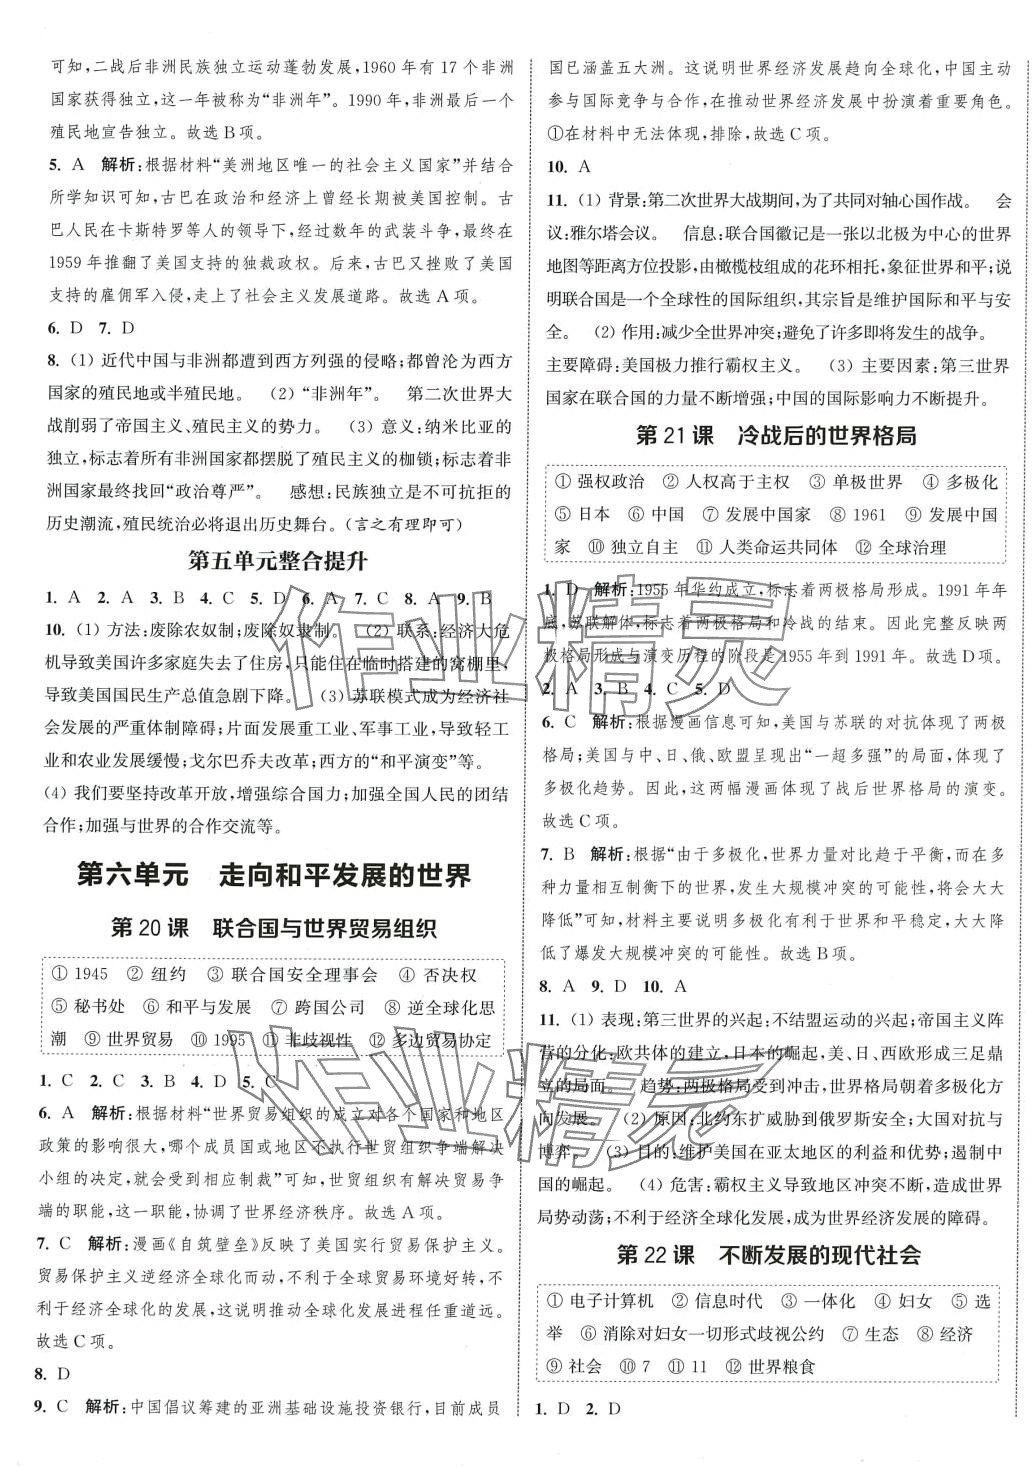 可知,二战后非洲民族独立运动蓬勃发展,1960 年有 17 个非洲
国家获得独立,这一年被称为“非洲年”。1990 年,非洲最后一个
殖民地宣告独立。故选 B 项。
5. A 解析:根据材料“美洲地区唯一的社会主义国家”并结合
所学知识可知,古巴在政治和经济上曾经长期被美国控制。古
巴人民在卡斯特罗等人的领导下,经过数年的武装斗争,最终在
1959 年推翻了美国支持的独裁政权。后来,古巴又挫败了美国
支持的雇佣军入侵,走上了社会主义发展道路。故选 A 项。
6. D 7. D
8. (1) 近代中国与非洲都遭到西方列强的侵略;都曾沦为西方
国家的殖民地或半殖民地。 (2) “非洲年”。 第二次世界大
战削弱了帝国主义、殖民主义的势力。 (3) 意义:纳米比亚的
独立,标志着所有非洲国家都摆脱了殖民主义的枷锁,标志着非
洲国家最终找回“政治尊严”。 感想:民族独立是不可抗拒的
历史潮流,殖民统治必将退出历史舞台。(言之有理即可)
第五单元整合提升
1. A 2. A 3. B 4. C 5. D 6. A 7. C 8. A 9. B
10. (1) 方法:废除农奴制;废除奴隶制。 (2) 联系:经济大危
机导致美国许多家庭失去了住房,只能住在临时搭建的窝棚里,
导致美国国民生产总值急剧下降。 (3) 苏联模式成为经济社
会发展的严重体制障碍;片面发展重工业、军事工业,导致轻工
业和农业发展缓慢;戈尔巴乔夫改革;西方的“和平演变”等。
(4) 我们要坚持改革开放,增强综合国力;加强全国人民的团结
合作;加强与世界的合作交流等。
第六单元 走向和平发展的世界
第 20 课 联合国与世界贸易组织
① 1945 ② 纽约 ③ 联合国安全理事会 ④ 否决权
⑤ 秘书处 ⑥ 和平与发展 ⑦ 跨国公司 ⑧ 逆全球化思
潮 ⑨ 世界贸易 ⑩ 1995 ⑪ 非歧视性 ⑫ 多边贸易协定
1. C 2. C 3. B 4. D 5. C
6. A 解析:根据材料“世界贸易组织的成立对各个国家和地区
政策的影响很大,哪个成员国或地区不执行世贸组织争端解决
小组的决定,就会受到相应制裁”可知,世贸组织有解决贸易争
端的职能,这一职能,协调了世界经济秩序。故选 A 项。
7. C 解析:漫画《自筑壁垒》反映了美国实行贸易保护主义。
贸易保护主义逆经济全球化而动,不利于全球贸易环境好转,不
利于经济全球化的发展,这说明推动全球化发展进程任重道远。
故选 C 项。
8. D
9. C 解析:中国倡议筹建的亚洲基础设施投资银行,目前成员
国已涵盖五大洲。这说明世界经济发展趋向全球化,中国主动
参与国际竞争与合作,在推动世界经济发展中扮演着重要角色。
①在材料中无法体现,排除,故选 C 项。
10. A
11. (1) 背景:第二次世界大战期间,为了共同对轴心国作战。 会
议:雅尔塔会议。 信息:联合国徽记是一张以北极为中心的世界
地图等距离方位投影,由橄榄枝组成的花环相托,象征世界和平;说
明联合国是一个全球性的国际组织,其宗旨是维护国际和平与安
全。 (2) 作用:减少全世界冲突;避免了许多即将发生的战争。
主要障碍:美国极力推行霸权主义。 (3) 主要因素:第三世界
国家在联合国的力量不断增强;中国的国际影响力不断提升。
第 21 课 冷战后的世界格局
① 强权政治 ② 人权高于主权 ③ 单极世界 ④ 多极化
⑤ 日本 ⑥ 中国 ⑦ 发展中国家 ⑧ 1961 ⑨ 发展中国
家 ⑩ 独立自主 ⑪ 人类命运共同体 ⑫ 全球治理
1. D 解析:1955 年华约成立,标志着两极格局形成。1991 年年
底,苏联解体,标志着两极格局和冷战的结束。因此完整反映两
极格局形成与演变历程的阶段是 1955 年到 1991 年。故选 D 项。
2. A 3. B 4. C 5. D
6. C 解析:根据漫画信息可知,美国与苏联的对抗体现了两极
格局;美国与中、日、俄、欧盟呈现出“一超多强”的局面,体现了
多极化趋势。因此,这两幅漫画体现了战后世界格局的演变。
故选 C 项。
7. B 解析:根据“由于多极化,世界力量对比趋于平衡,而在多
种力量相互制衡下的世界,发生大规模冲突的可能性,将会大大
降低”可知,材料主要说明多极化有利于世界和平稳定,大大降
低了爆发大规模冲突的可能性。故选 B 项。
8. A 9. D 10. A
11. (1) 表现:第三世界的兴起;不结盟运动的兴起;帝国主义阵
营的分化;欧共体的建立,日本的崛起,美、日、西欧形成三足鼎
立的局面。 趋势:两极格局受到冲击,世界格局朝着多极化方
向发展。 (2) 原因:北约东扩威胁到俄罗斯安全;大国对抗与
博弈。 (3) 目的:维护美国在亚太地区的利益和优势;遏制中
国的崛起。 (4) 危害:霸权主义导致地区冲突不断,造成世界
局势动荡;不利于经济全球化发展,成为世界经济发展的障碍。
第 22 课 不断发展的现代社会
① 电子计算机 ② 信息时代 ③ 一体化 ④ 妇女 ⑤ 选
举 ⑥ 消除对妇女一切形式歧视公约 ⑦ 生态 ⑧ 经济
⑨ 社会 ⑩ 7 ⑪ 11 ⑫ 世界粮食
1. D 2. D
作业精灵
作业精灵